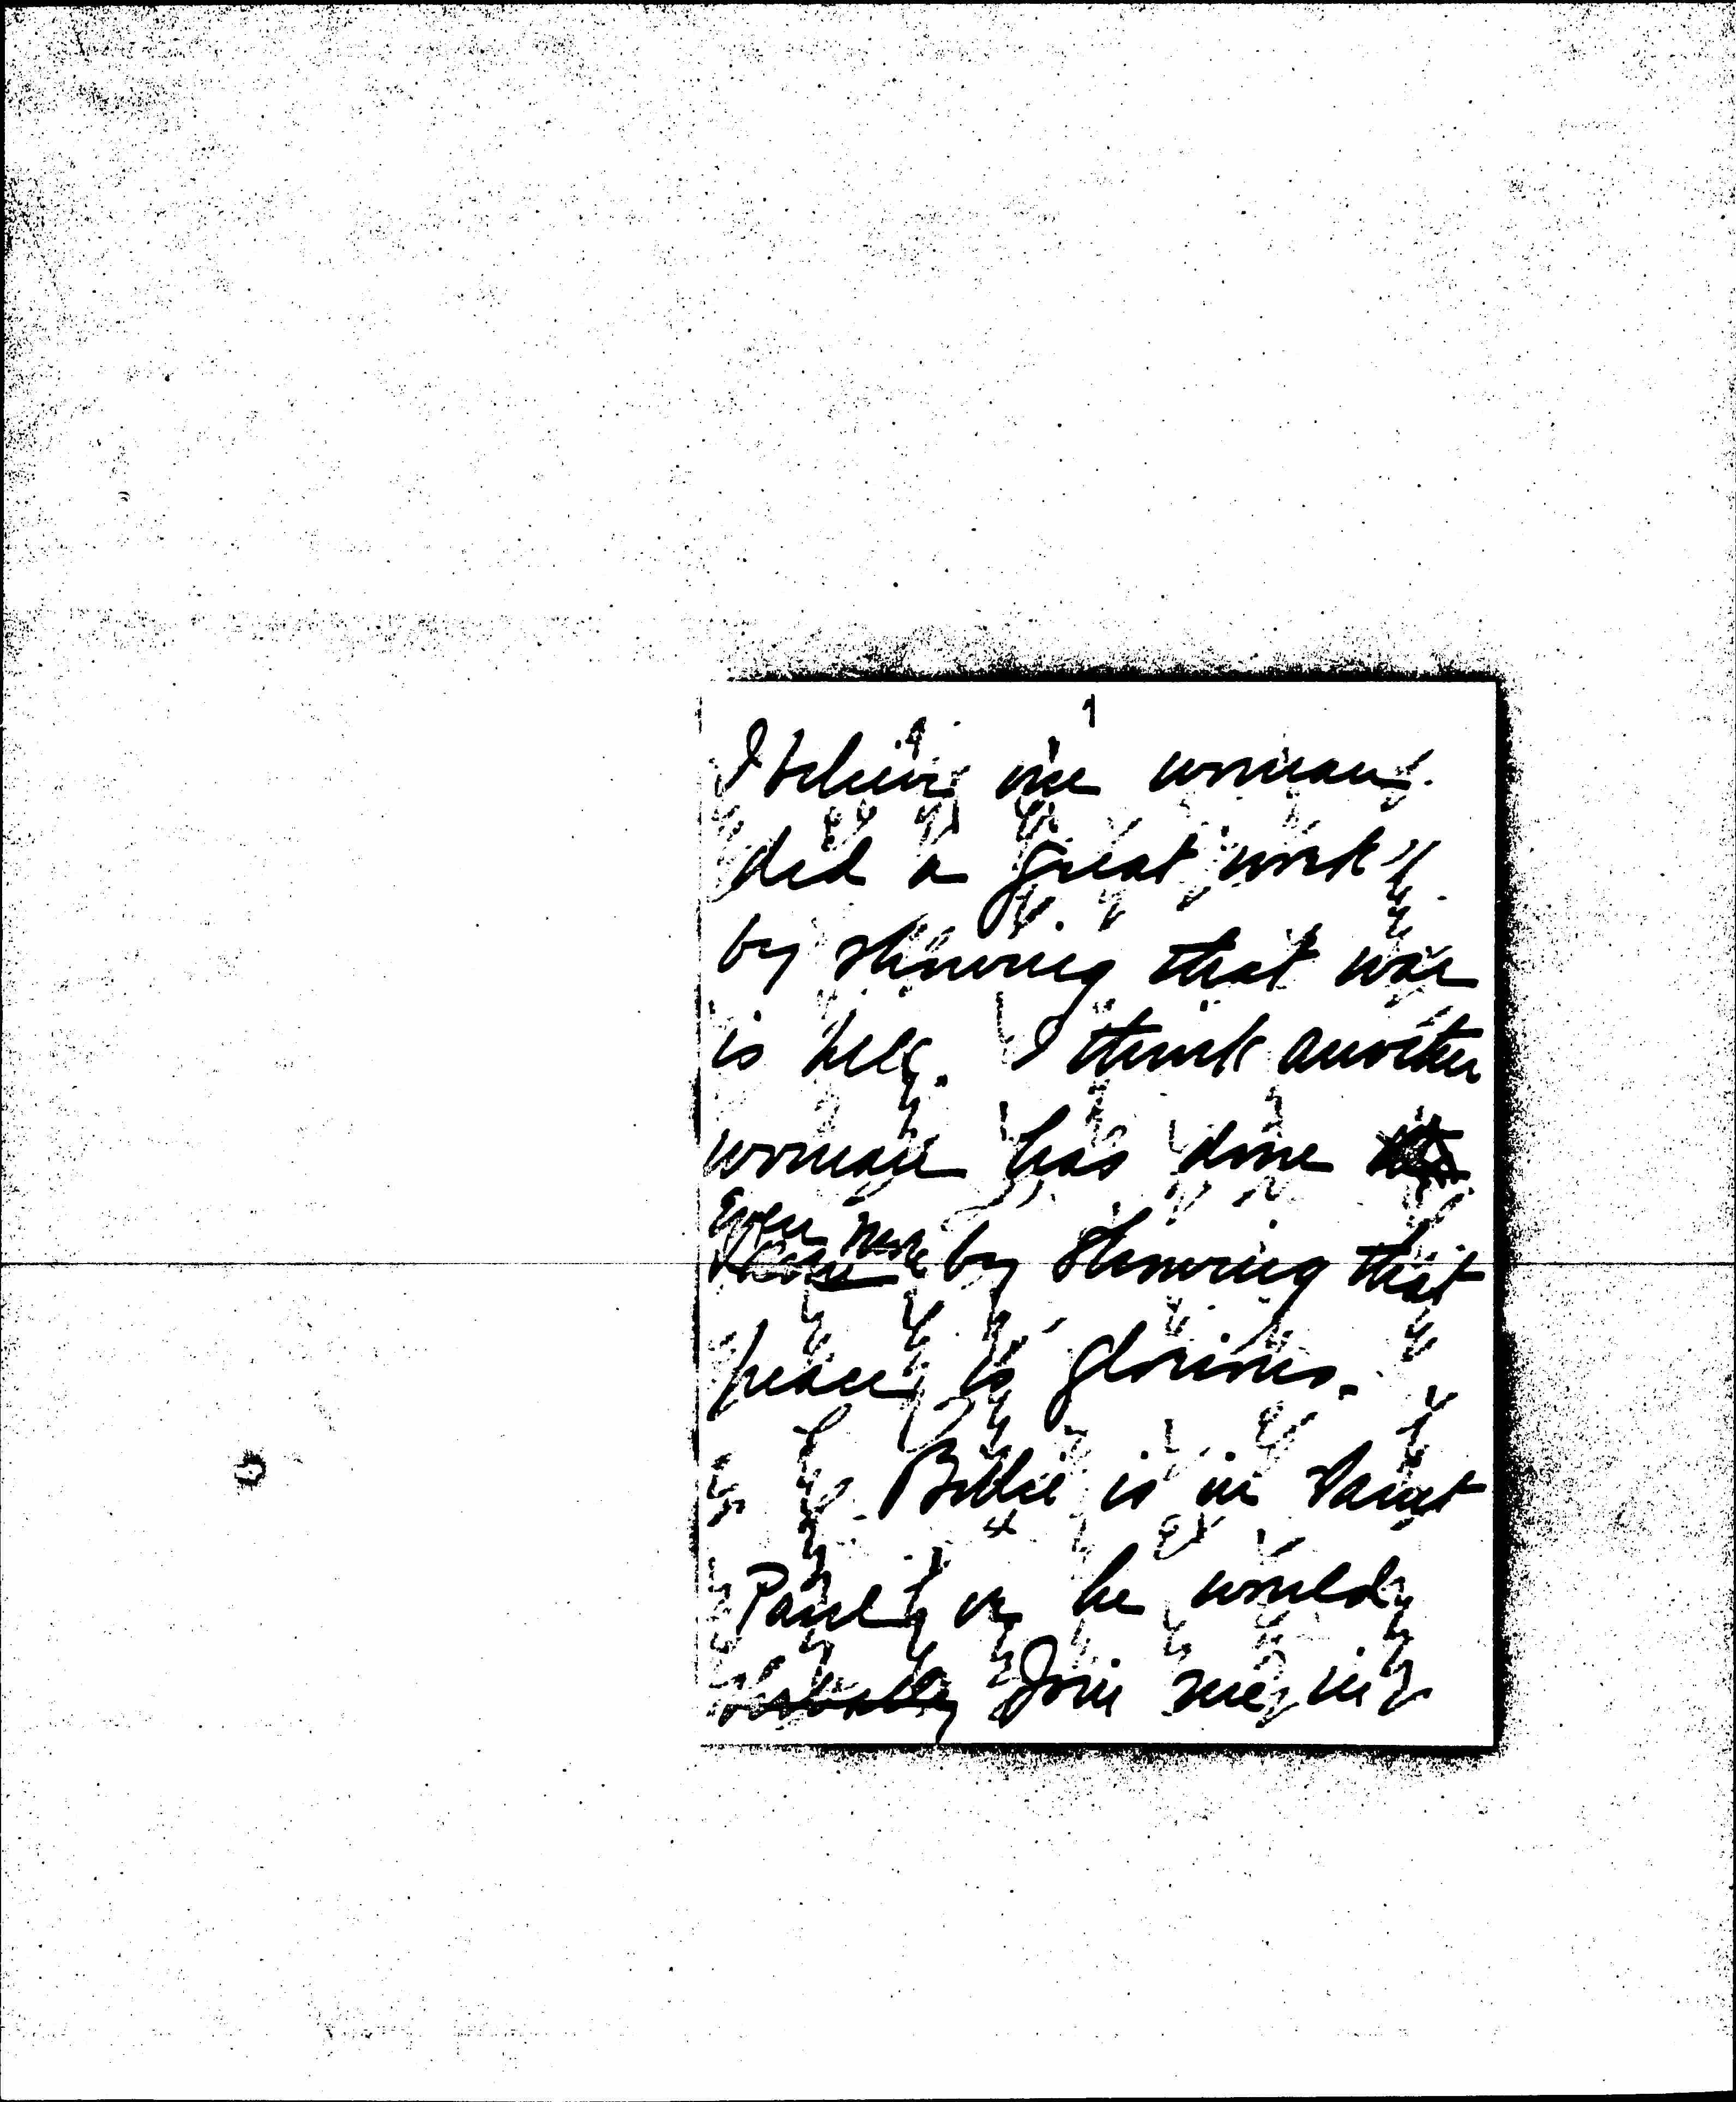 I believe one woman
did a great work
by showing that war
is hell. I think another
woman has done
even more by showing that
peace is glorious.
Billie is in Saint
Paul or he would
probably join me in